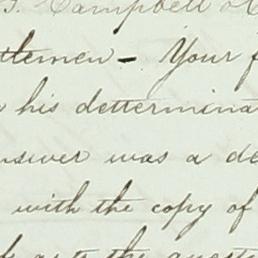 J. Campbell &
tlemen - Your f
his dettermina
nswer was a de
with the copy of
as to the quest